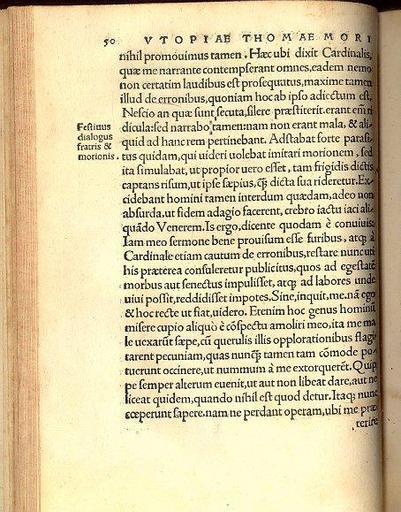 50 VTOPIAE THOMAE MORI
nihil promouimus tamen. Hæc ubi dixit Cardinalis,
quæ me narrante contempserant omnes, eadem nemo
non certatim laudibus est prosequutus, maxime tamen
illud de erronibus, quoniam hoc ab ipso adiectum est.
Nescio an quæ sunt secuta, silere præstiterit. erant em̃ ri
Festiuus
dialogus
fratris &
morionis.
dicula: sed narrabo: tamen: nam non erant mala, & ali-
quid ad hanc rem pertinebant. Adstabat forte parasi-
tus quidam, qui uideri uolebat imitari morionem, sed
ita simulabat, ut propior uero esset, tam frigidis dictis
captans risum, ut ipse sæpius, cꝗ̃ dicta sua rideretur. Ex-
cidebant homini tamen interdum quædam, adeo non
absurda, ut fidem adagio facerent, crebro iactu iaci ali-
quãdo Venerem. Is ergo, dicente quodam è conuiuis:
Iam meo sermone bene prouisum esse furibus, atqꝫ à
Cardinale etiam cautum de erronibus, restare nunc uti
his præterea consuleretur publicitus, quos ad egestatẽ
morbus aut senectus impulisset, atqꝫ ad labores unde
uiui possit, reddidisset impotes. Sine, inquit, me. nã ego
& hoc recte ut fiat, uidero. Etenim hoc genus hominũ
misere cupio aliquò è cõspectu amoliri meo, ita me ma
le uexarũt sæpe, cũ querulis illis opplorationibus flagi
tarent pecuniam, quas nunꝗ̃ tamen tam cõmode po-
tuerunt occinere, ut nummum à me extorquerẽt. Quip
pe semper alterum euenit, ut aut non libeat dare, aut ne
liceat quidem, quando nihil est quod detur. Itaqꝫ nunc
cœperunt sapere. nam ne perdant operam, ubi me præ
terire